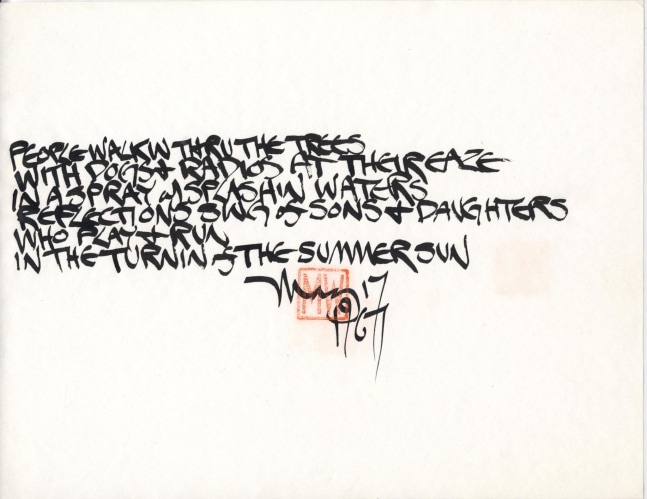 PEOPLE WALKIN THRU THE TREES
WITH DOGS & RADIOS AT THEIR EAZE
IN A SPRAY of SPLASHIN WATERS
REFLECTIONS SING of SONS & DAUGHTERS
WHO PLAY & RUN
IN THE TURNIN of THE SUMMER SUN
17
MW